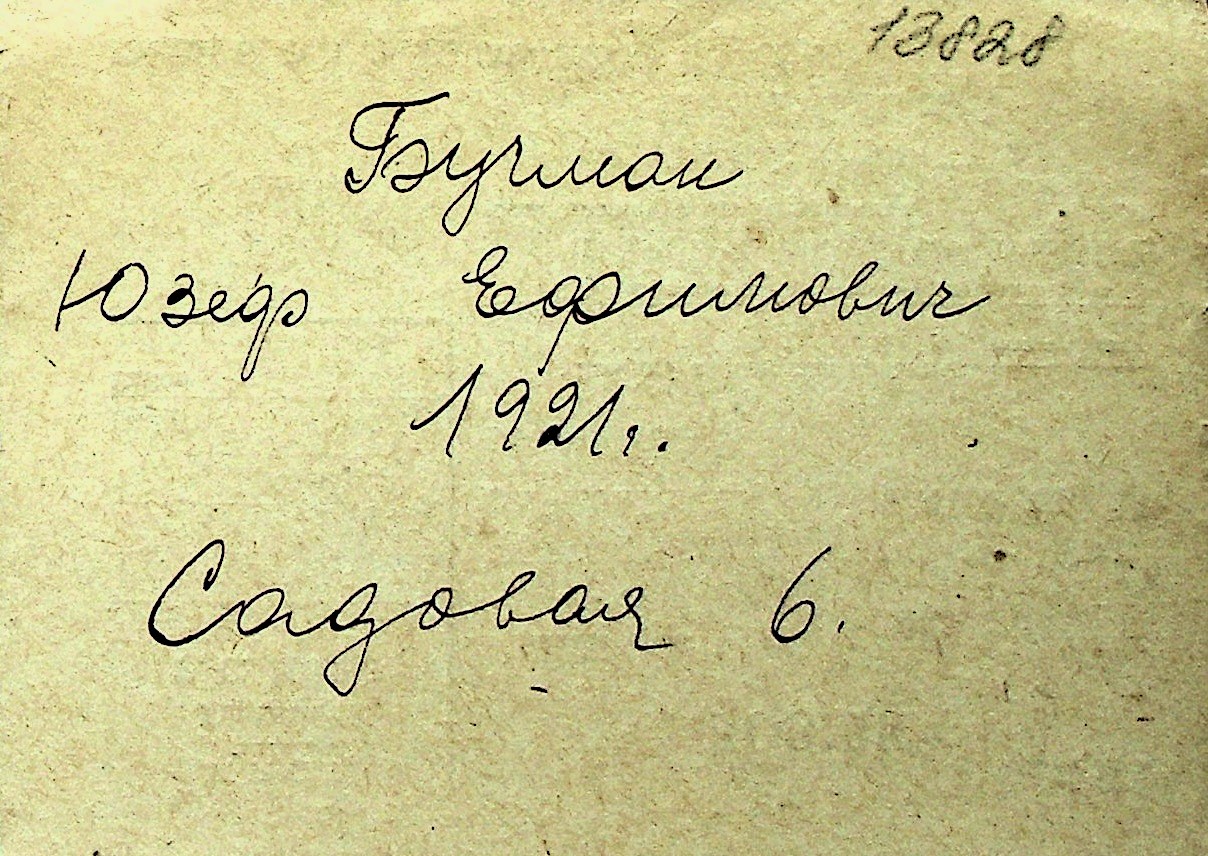 13828
Бучман
Юзеф Ефимович
1921 г.
Садовая 6.